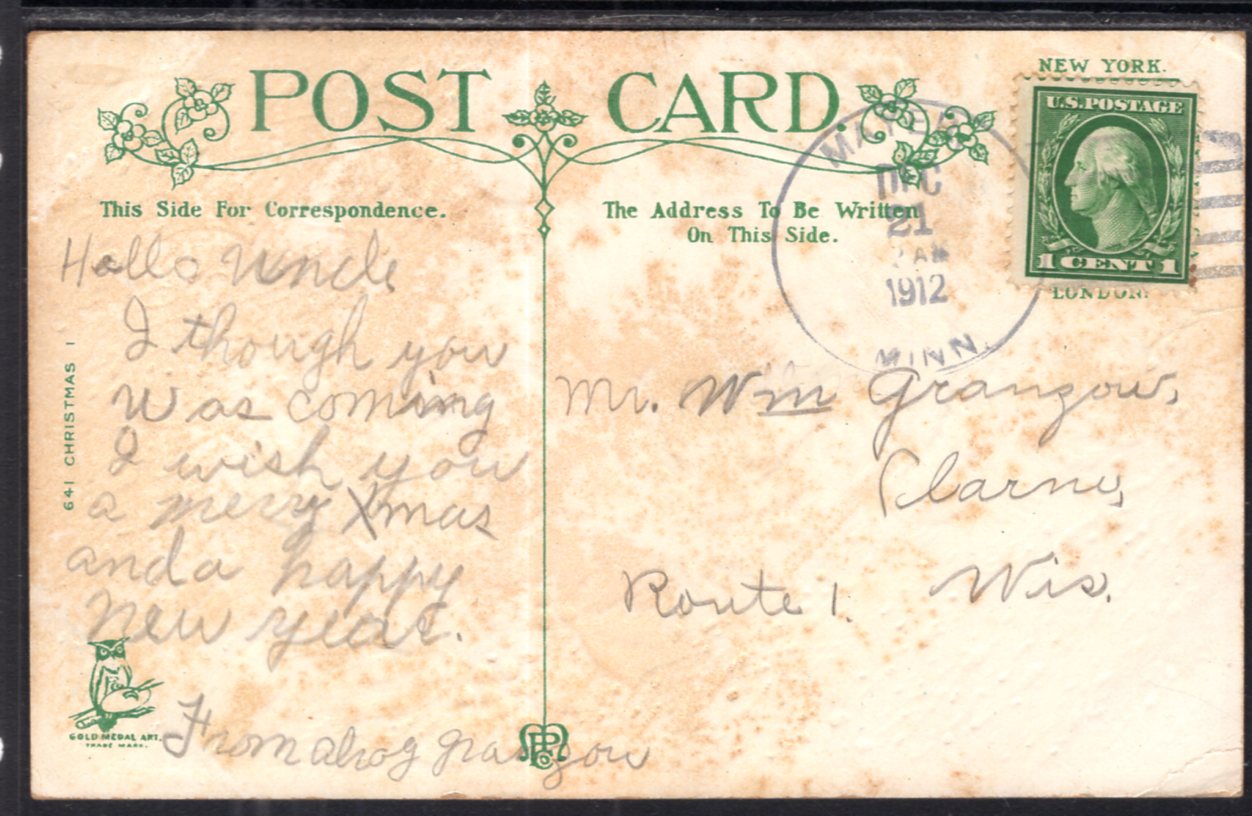 POST CARD.
NEW YORK.
U.S. POSTAGE
1 CENT 1
LONDON.
MAYER
DEC
21
AM
1912
MINN.
This Side For Correspondence.
The Address To Be Written
On This Side.
Hallo Uncle
I though you
was coming
I wish you
a merry Xmas
and a happy
New year.
From granzow
Mr. Wm Granzow,
Larne,
Route 1. Wis.
641 CHRISTMAS 1
GOLD MEDAL ART.
TRADE MARK.